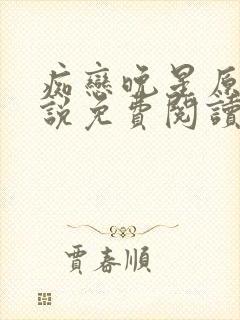 痴戀晚星原
說免費閱讀
賈春順